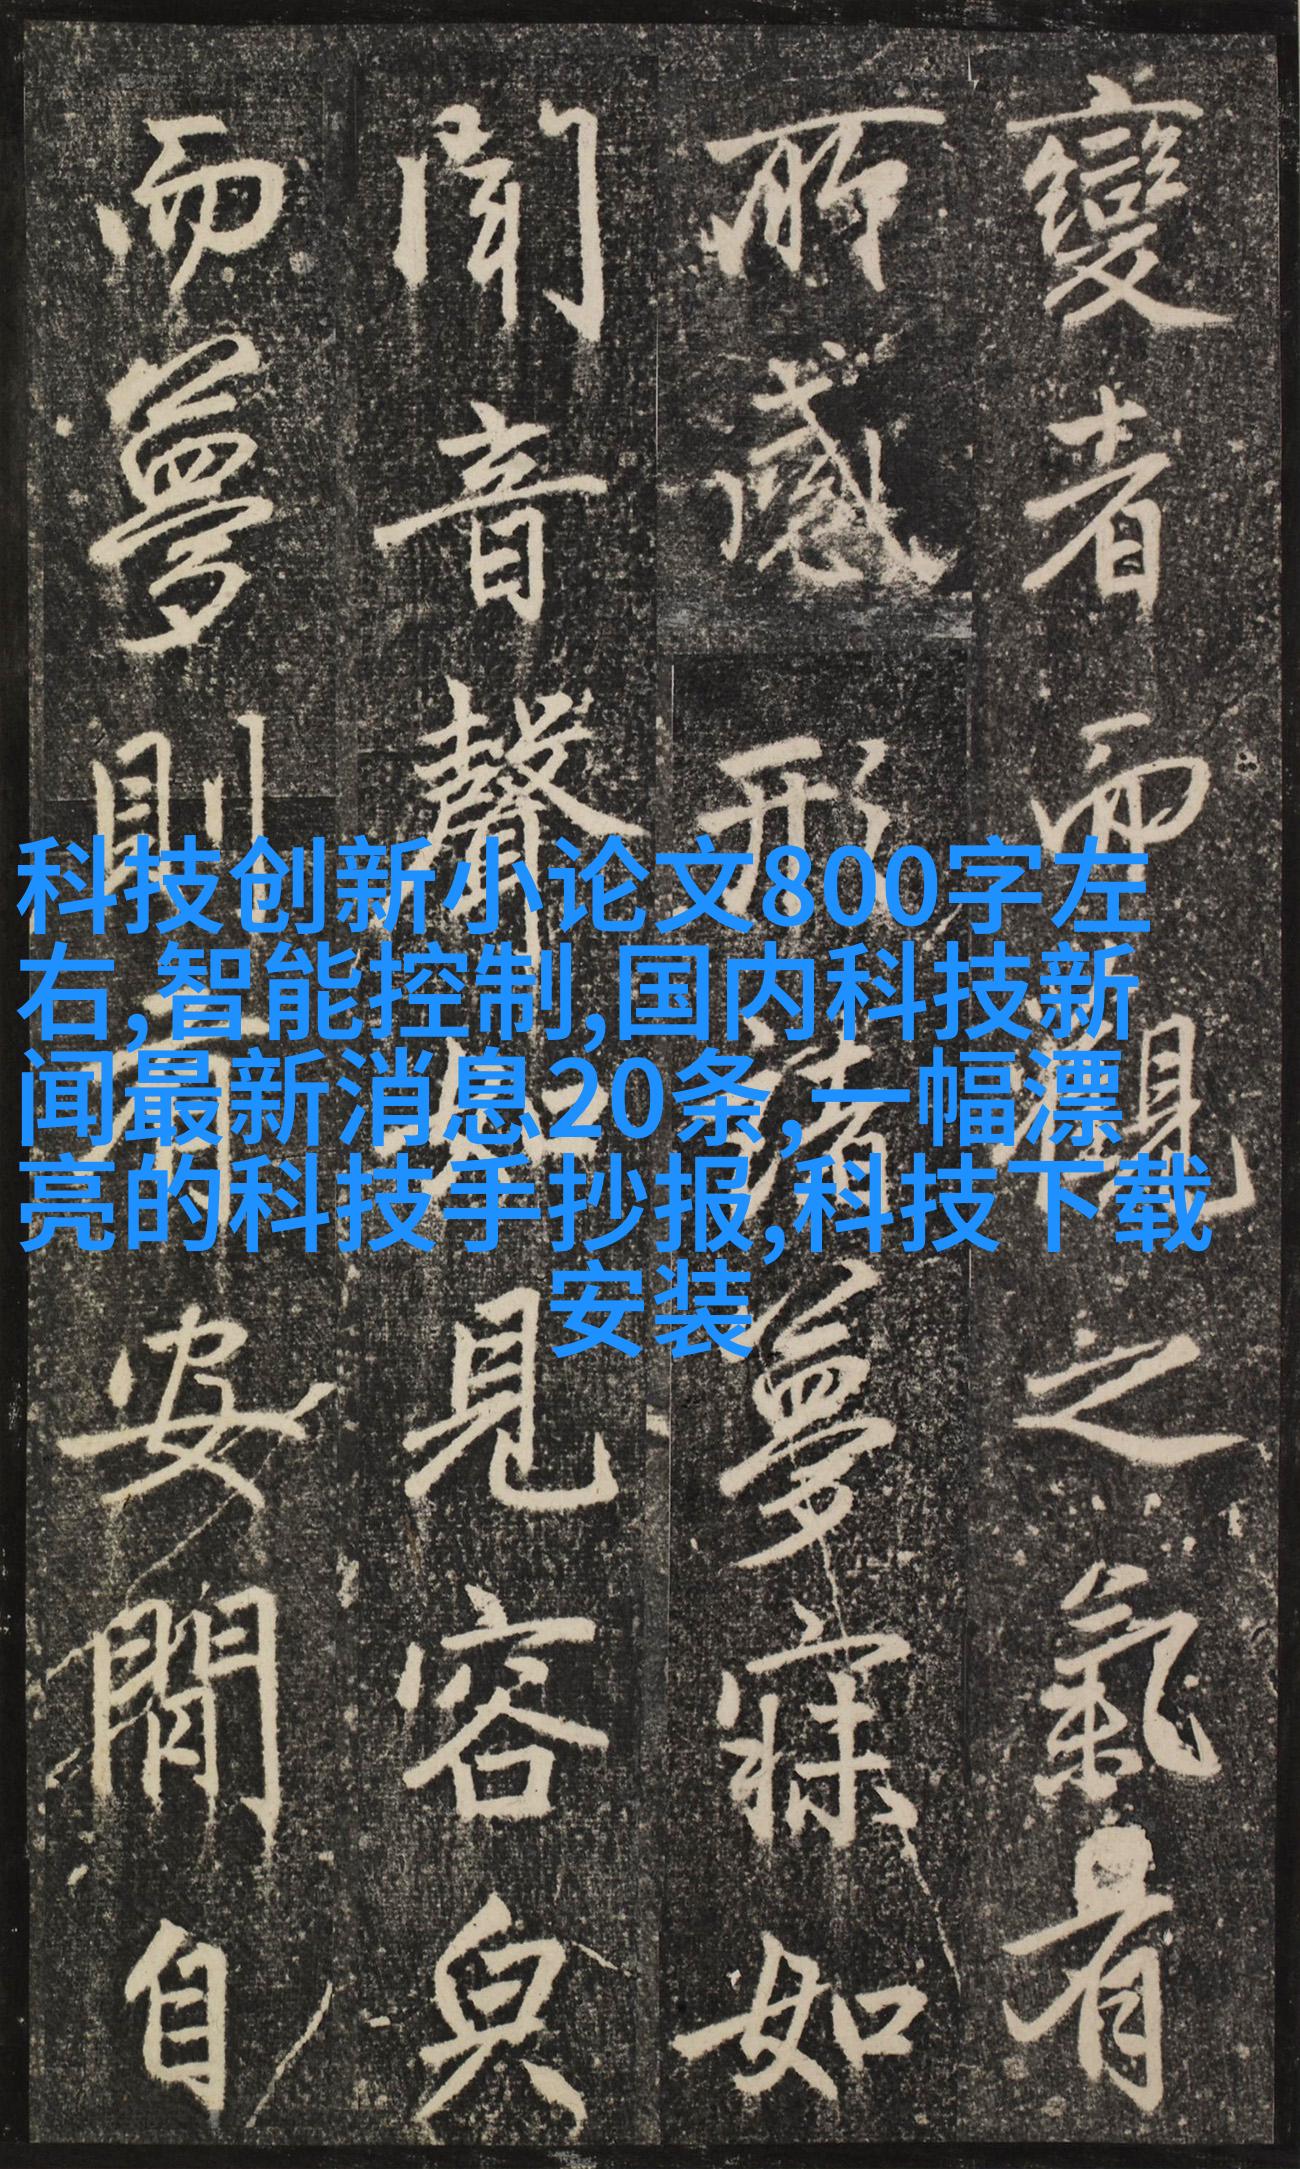 變者而觀之氣有
所感形諸夢寐如
聞音聲如見容皃
而夢則有安閒自
科技创新小论文800字左
右,智能控制,国内科技新
闻最新消息20条,一幅漂
亮的科技手抄报,科技下载
安装